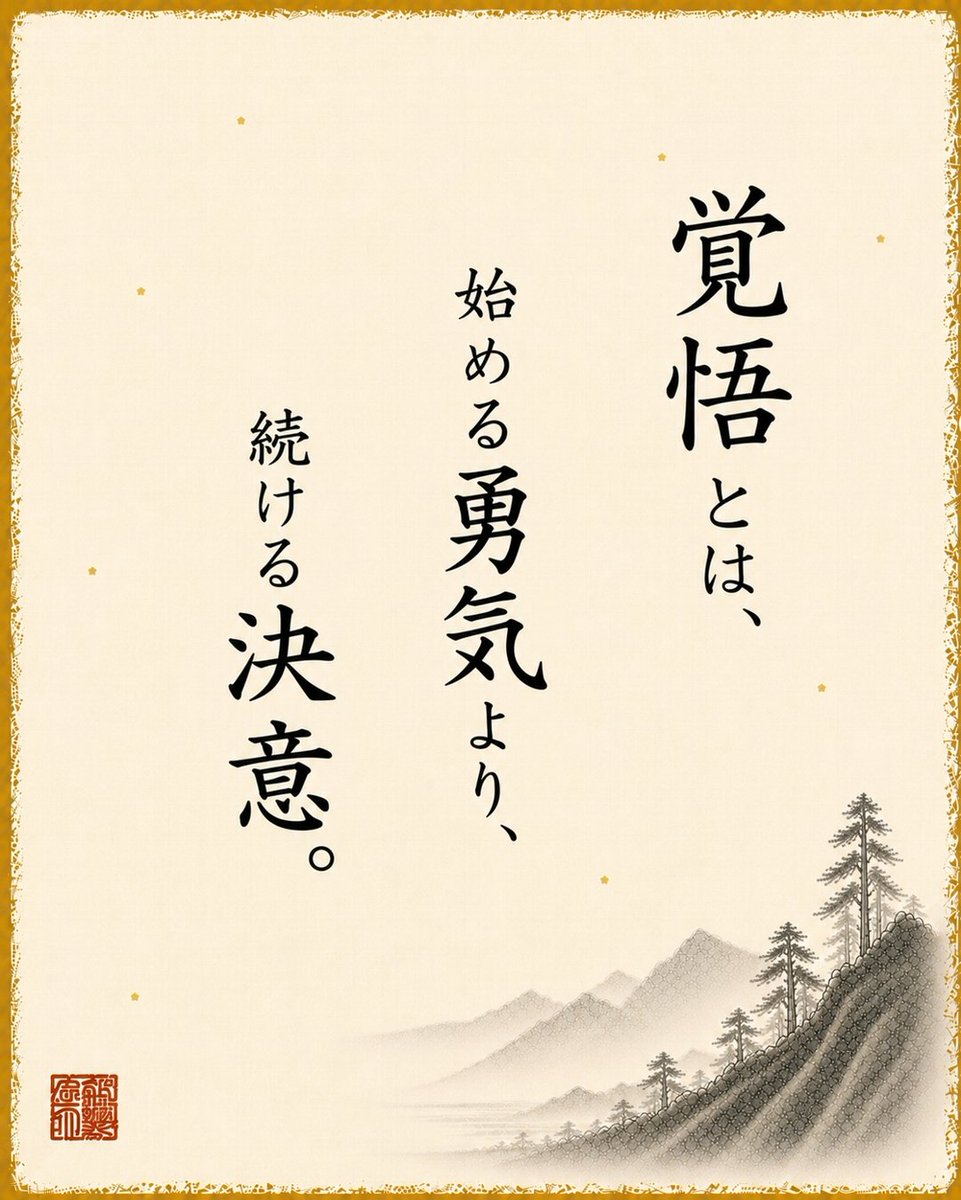 覚悟とは、
始める勇気より、
続ける決意。